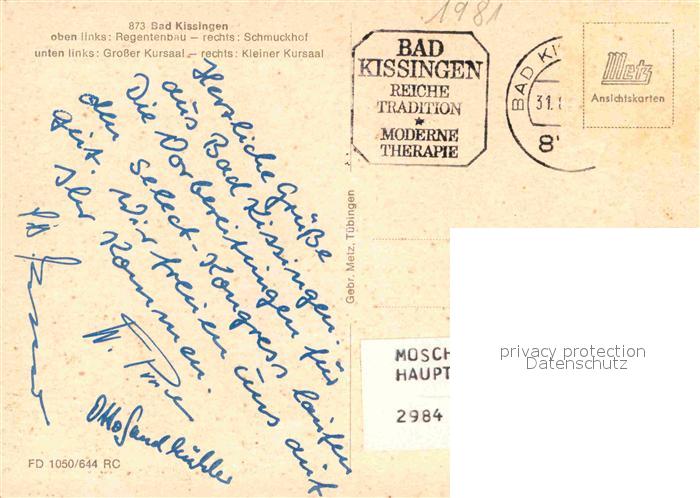 1981
873 Bad Kissingen
oben links: Regentenbau – rechts: Schmuckhof
unten links: Großer Kursaal – rechts: Kleiner Kursaal
BAD
KISSINGEN
REICHE
TRADITION
★
MODERNE
THERAPIE
BAD KI
31.
8
Metz
Ansichtskarten
Herzliche Grüße
aus Bad Kissingen.
Die Vorbereitungen für
den Select-Kongress laufen
gut. Wir freuen uns auf
Ihr Kommen.
W.
Otto Sandkühler
Gebr. Metz, Tübingen
MOSCH
HAUPT
2984
privacy protection
Datenschutz
FD 1050/644 RC